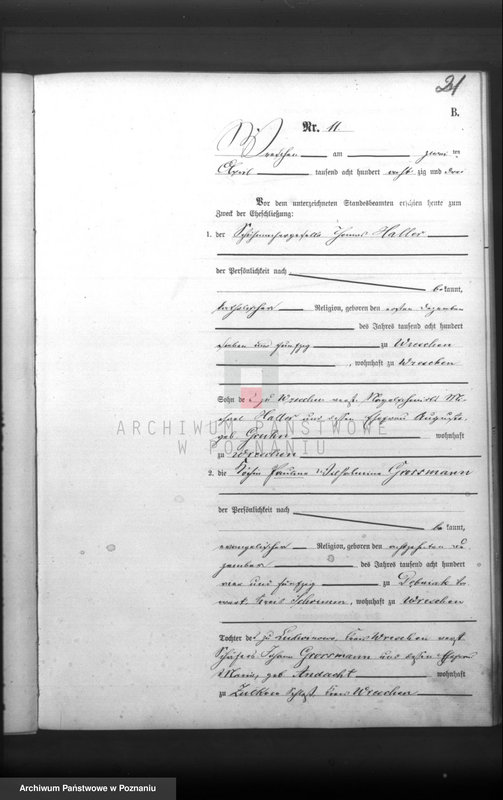 21
B.
Nr. 11.
Wreschen am zwei ten
April tausend acht hundert acht zig und drei
Vor dem unterzeichneten Standesbeamten erschienen heute zum
Zweck der Eheschließung:
1. der Schuhmachergeselle Thomas Haller
der Persönlichkeit nach
bekannt,
katholischer Religion, geboren den ersten Dezember
des Jahres tausend acht hundert
sieben und fünfzig zu Wreschen
, wohnhaft zu Wreschen
Sohn de zu Wreschen verst. Nagelschmidt Mi-
chael Haller und dessen Ehefrau Auguste
geb. wohnhaft
ARCHIWUM PAŃSTWOWE
W POZNANIU
zu Wreschen
2. die Köchin Pauline Wilhelmine Grossmann
der Persönlichkeit nach
bekannt,
evangelischer Religion, geboren den achtzehnten De-
zember des Jahres tausend acht hundert
vier und fünfzig zu
Kreis Schrimm, wohnhaft zu Wreschen
Tochter de zu Kreis Wreschen verst.
Schäfers Johann Grossmann und dessen Ehefrau
Marie, geb. Andacht wohnhaft
zu Kreis Wreschen
Archiwum Państwowe w Poznaniu